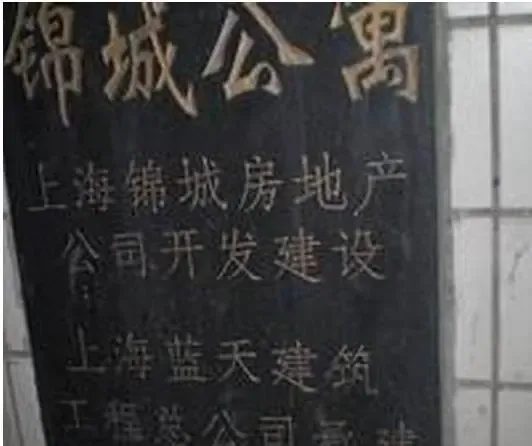 锦城公寓
上海锦城房地产
公司开发建设
上海蓝天建筑
工程总公司承建